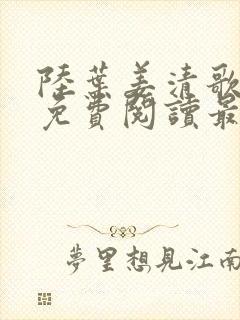 陸葉姜清歌
免費閱讀最
夢里想見江南